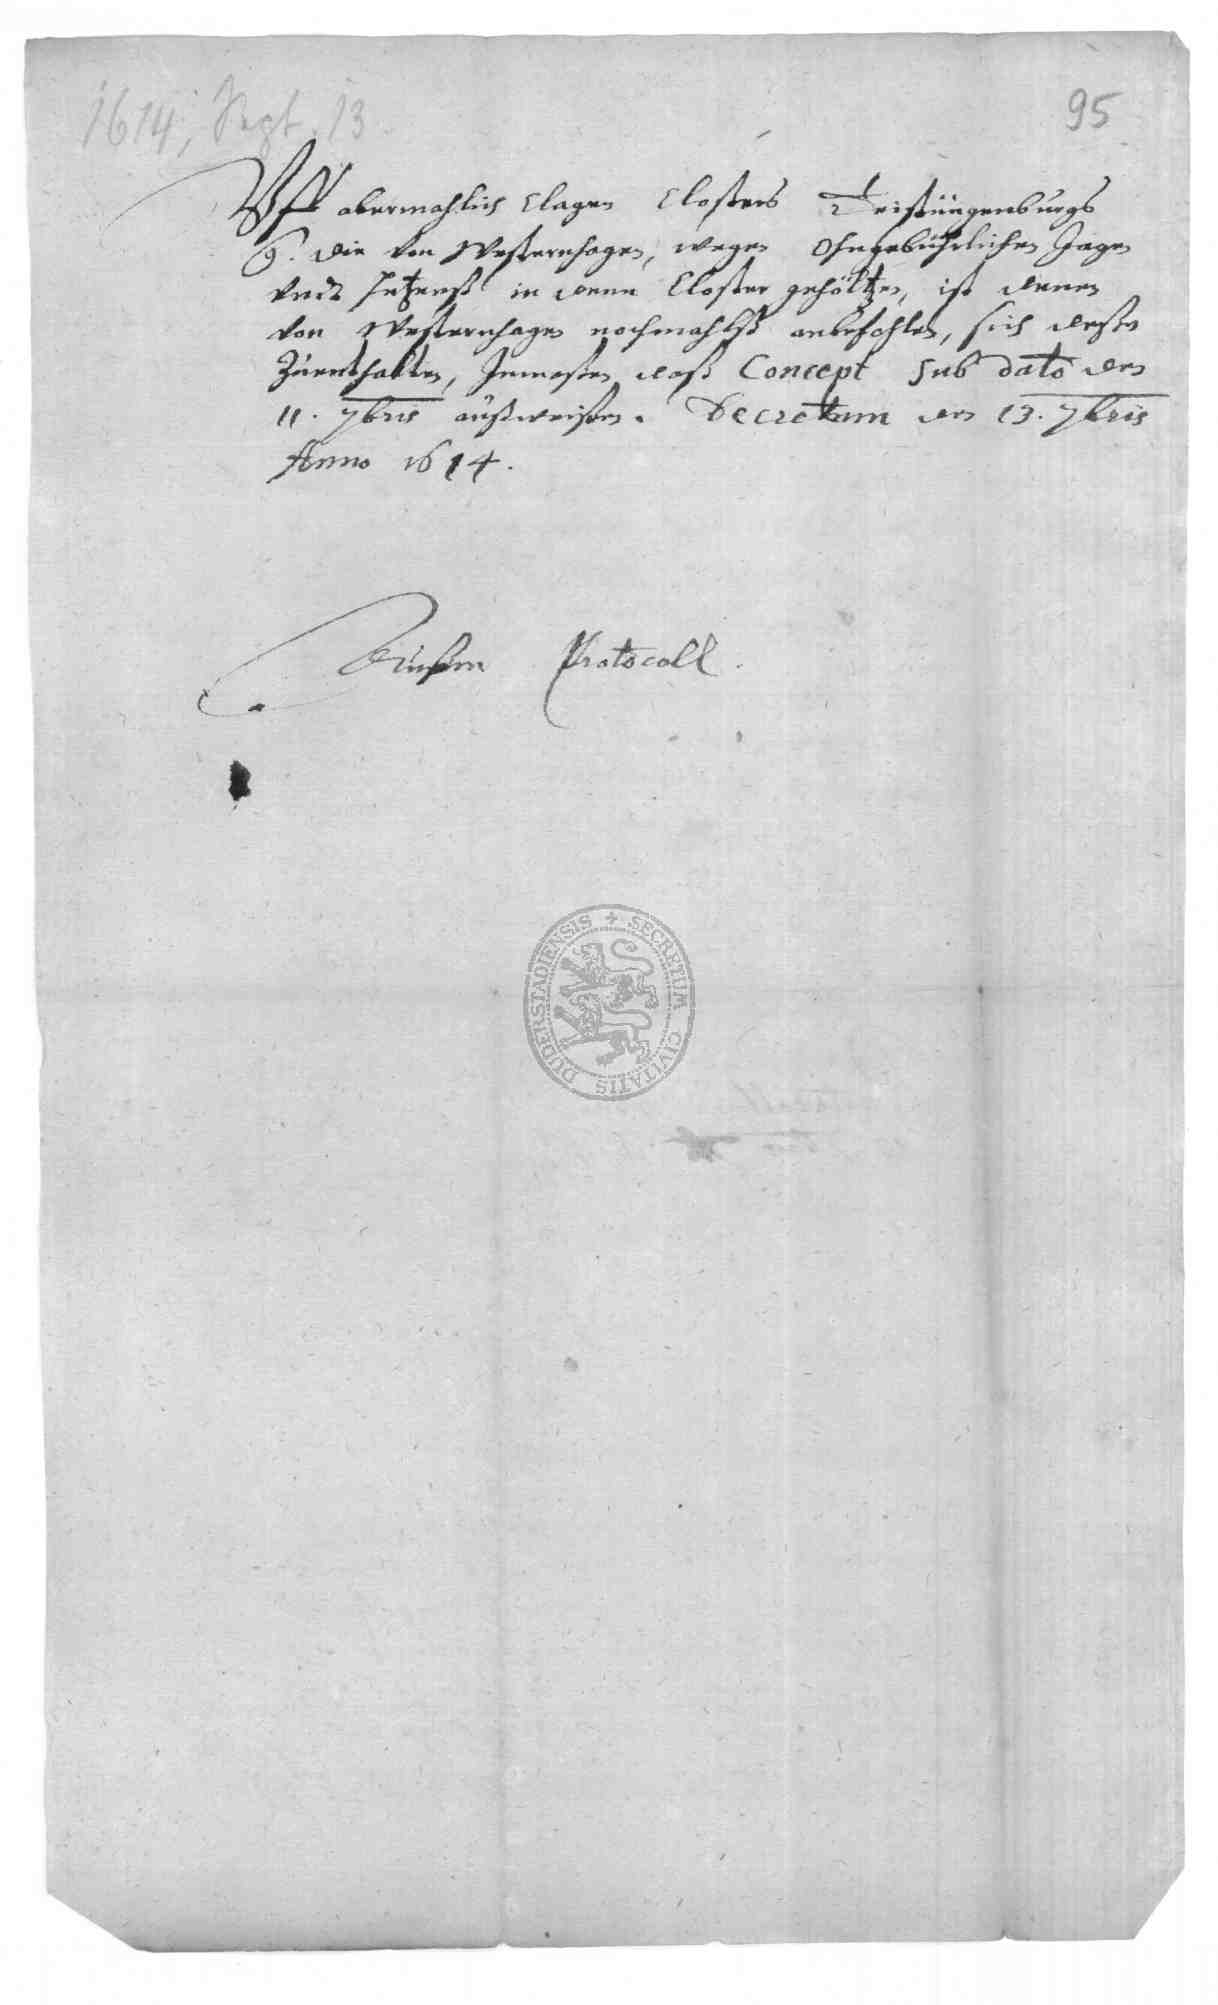 1614, Sept. 13
95
Vff abermahlich Clagen Closters Teistüngenburgk
die von Westernhagen, wegen ohngebührlichen Jagen
vndt hetzenß in denn Closter gehöltzen, ist denen
von Westernhagen nochmahlß anbefohlen, sich deßen
Zuenthalten, Inmaßen daß Concept sub dato den
11. 7bris außweißen. Decretum den 13. 7bris
Anno 1614.
Protocoll.
SECRETUM CIVITATIS DUDERSTADIENSIS